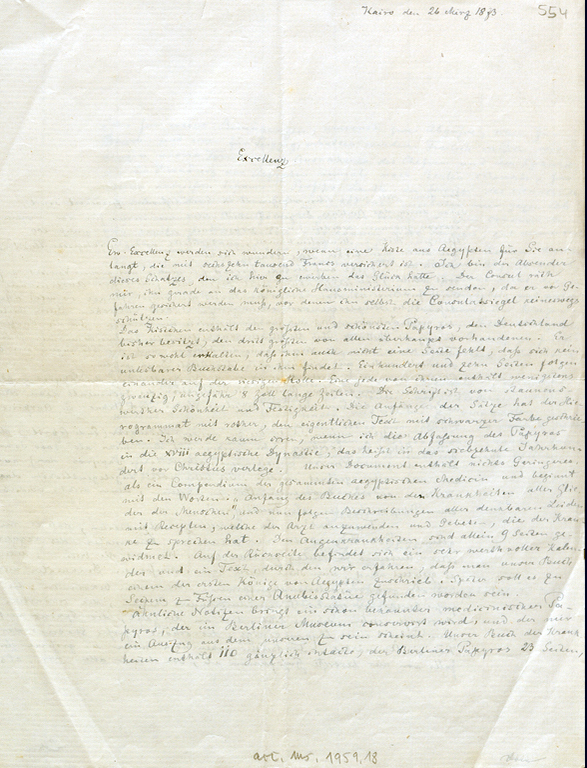 554
Kairo den 26 März 1873.
Excellenz
Ew. Excellenz werden sich wundern, wenn eine Kiste aus Aegypten für Sie an-
langt, die mit tausend Francs versichert ist. Ich bin der Absender
dieses Schatzes, den ich hier zu das Glück hatte. Der Consul räth
mir, ihn grade an das königliche Hausministerium zu senden, da er vor Ge-
fahren gesichert werden muß, vor denen ihn selbst die Consulatssiegel keineswegs
schützen.
Das Kistchen enthält den größten und schönsten Papyros, den Deutschland
bisher besitzt, den dritt größten von allen überhaupt vorhandenen. Er
ist so erhalten, daß ihm auch nicht eine Seite fehlt, daß sich kein
unlesbarer Buchstabe in ihm findet. Einhundert und zehn Seiten folgen
einander auf der Rolle. Eine jede von ihnen enthält wenigstens
zwanzig, ungefähr 8 Zoll lange Zeilen. Die Schrift ist von
Schönheit und Festigkeit. Die Anfänge der Sätze hat der Hie-
rogrammat mit rother, den eigentlichen Text mit schwarzer Farbe geschrie-
ben. Ich werde kaum irren, wenn ich die Abfassung des Papyros
in die XVIII aegyptische Dynastie, das heißt in das siebzehnte Jahrhun-
dert vor Christus verlege. Unser Document enthält nichts Geringeres
als ein Compendium der gesammten aegyptischen Medicin und beginnt
mit den Worten: „Anfang des Buches von den Krankheiten aller Glie-
der der Menschen" und nun folgen Beschreibungen aller denkbaren Leiden
mit Recepten, welche der Arzt anzuwenden und Gebeten, die der Kran-
ke zu sprechen hat. Den Augenkrankheiten sind allein 9 Seiten ge-
widmet. Auf der Rückseite befindet sich ein sehr werthvoller Kalen-
der und ein Text, durch den wir erfahren, daß man unser Buch
einem der ersten Könige von Aegypten zuschrieb. Später soll es zu
Füßen einer Anubisstatue gefunden worden sein.
Aehnliche Notizen bringt ein schon bekannter medicinischer Pa-
pyros, der im Berliner Museum conservirt wird, und der nur
ein Auszug aus dem unseren zu sein scheint. Unser Buch der Krank-
heiten enthält 110 gänzlich intacte, der Berliner Papyros 23 Seiten,
acc. ms. 1959.18